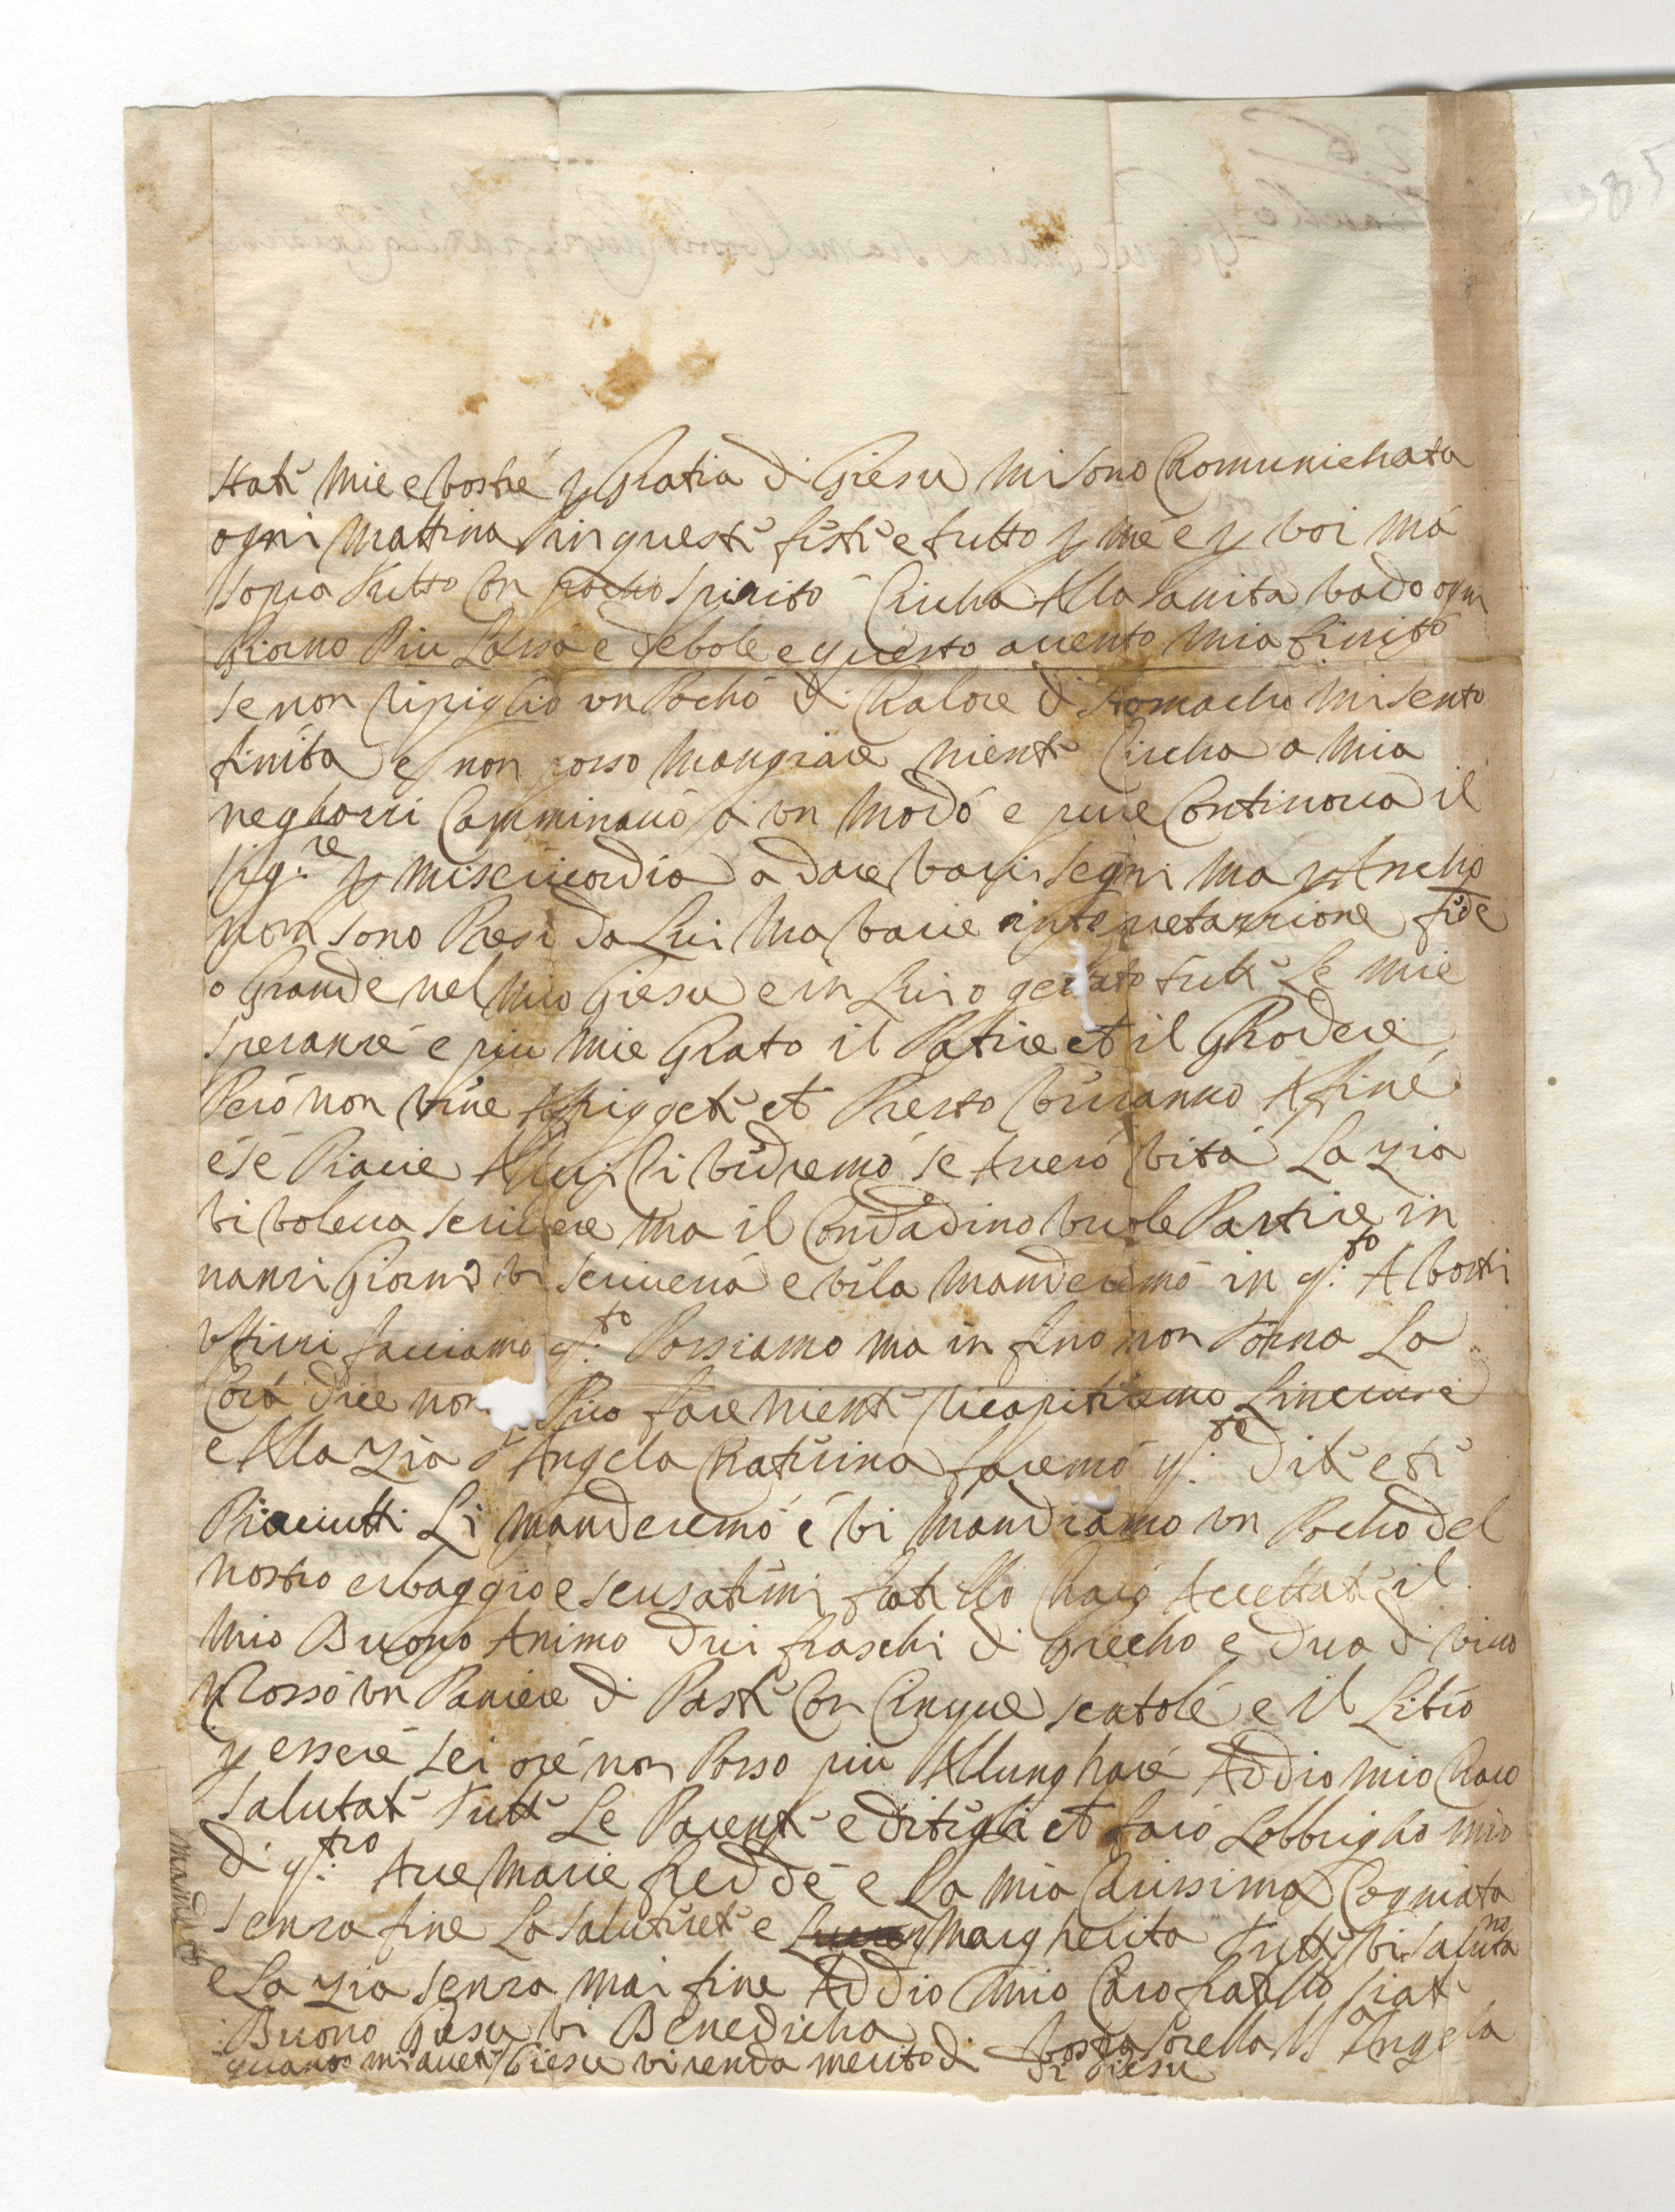 stati mie e vostre p Gratia di Giesu mi sono Comunichata
ogni Mattina in questi festi e tutto p me e p voi ma
sopra tutto Con pocho spirito Circha Alla sanita vado ogni
Giorno Piu Lassa e debole e questo avento mia finito
se non ripiglio un Pocho di Kalore di stomacho mi sento
finita e non posso Mangiare nienti Circha a mia
neghozzi Camminano a un Modo e pure Continova il
Sig.re p misericordia a dare vari segni Ma p Ancho
non sono Presi da Lui Ma varie interpretazzione fede
o Grande nel mio Giesu e in Lui o gettato tuti Le mie
speranze e piu mie Grato il Patire et il Ghodere
Però non vine Afriggeti et Presto veranno A fine
e se Piacie A Lui Ci vedremo se Averò vita La zia
vi voleva scrivere Ma il Condadino vuole Partire in
nanzi Giorno vi scriverà e vela Manderemo in q.to A vosti
uffizzi facciamo q.to Possiamo ma in fino non Torna La
Cora dice non Puo fare nienti ricapitiamo
e Alla zia d Angela Katerina faremo q.to Dite eti
Piaciutti Li Manderemo e vi Mandiamo un Pocho del
nostro erbaggio e scusatimi fratello Charo Accettati il
Mio Buono Animo dui fiaschi di Grecho e dua di vino
Rosso un Paniere di Pasti Con Cinque scatole e il Libro
p essere sei ore non Posso piu Allunghare Addio mio Charo
salutati Tutti Le Parenti e ditegli et farò Lobbrigho mio
di q.tro Ave Marie fredde e La mia Carissima Cogniata
senza fine La Salutireti e Margherita Tutti vi Salutano
e La zia senza mai fine Addio Mio Caro fratello siati
Buono Giesu vi Benedicha vostra sorella M.a Angela
quanto mi aveti Giesu vi renda merito di di Giesu
mandato